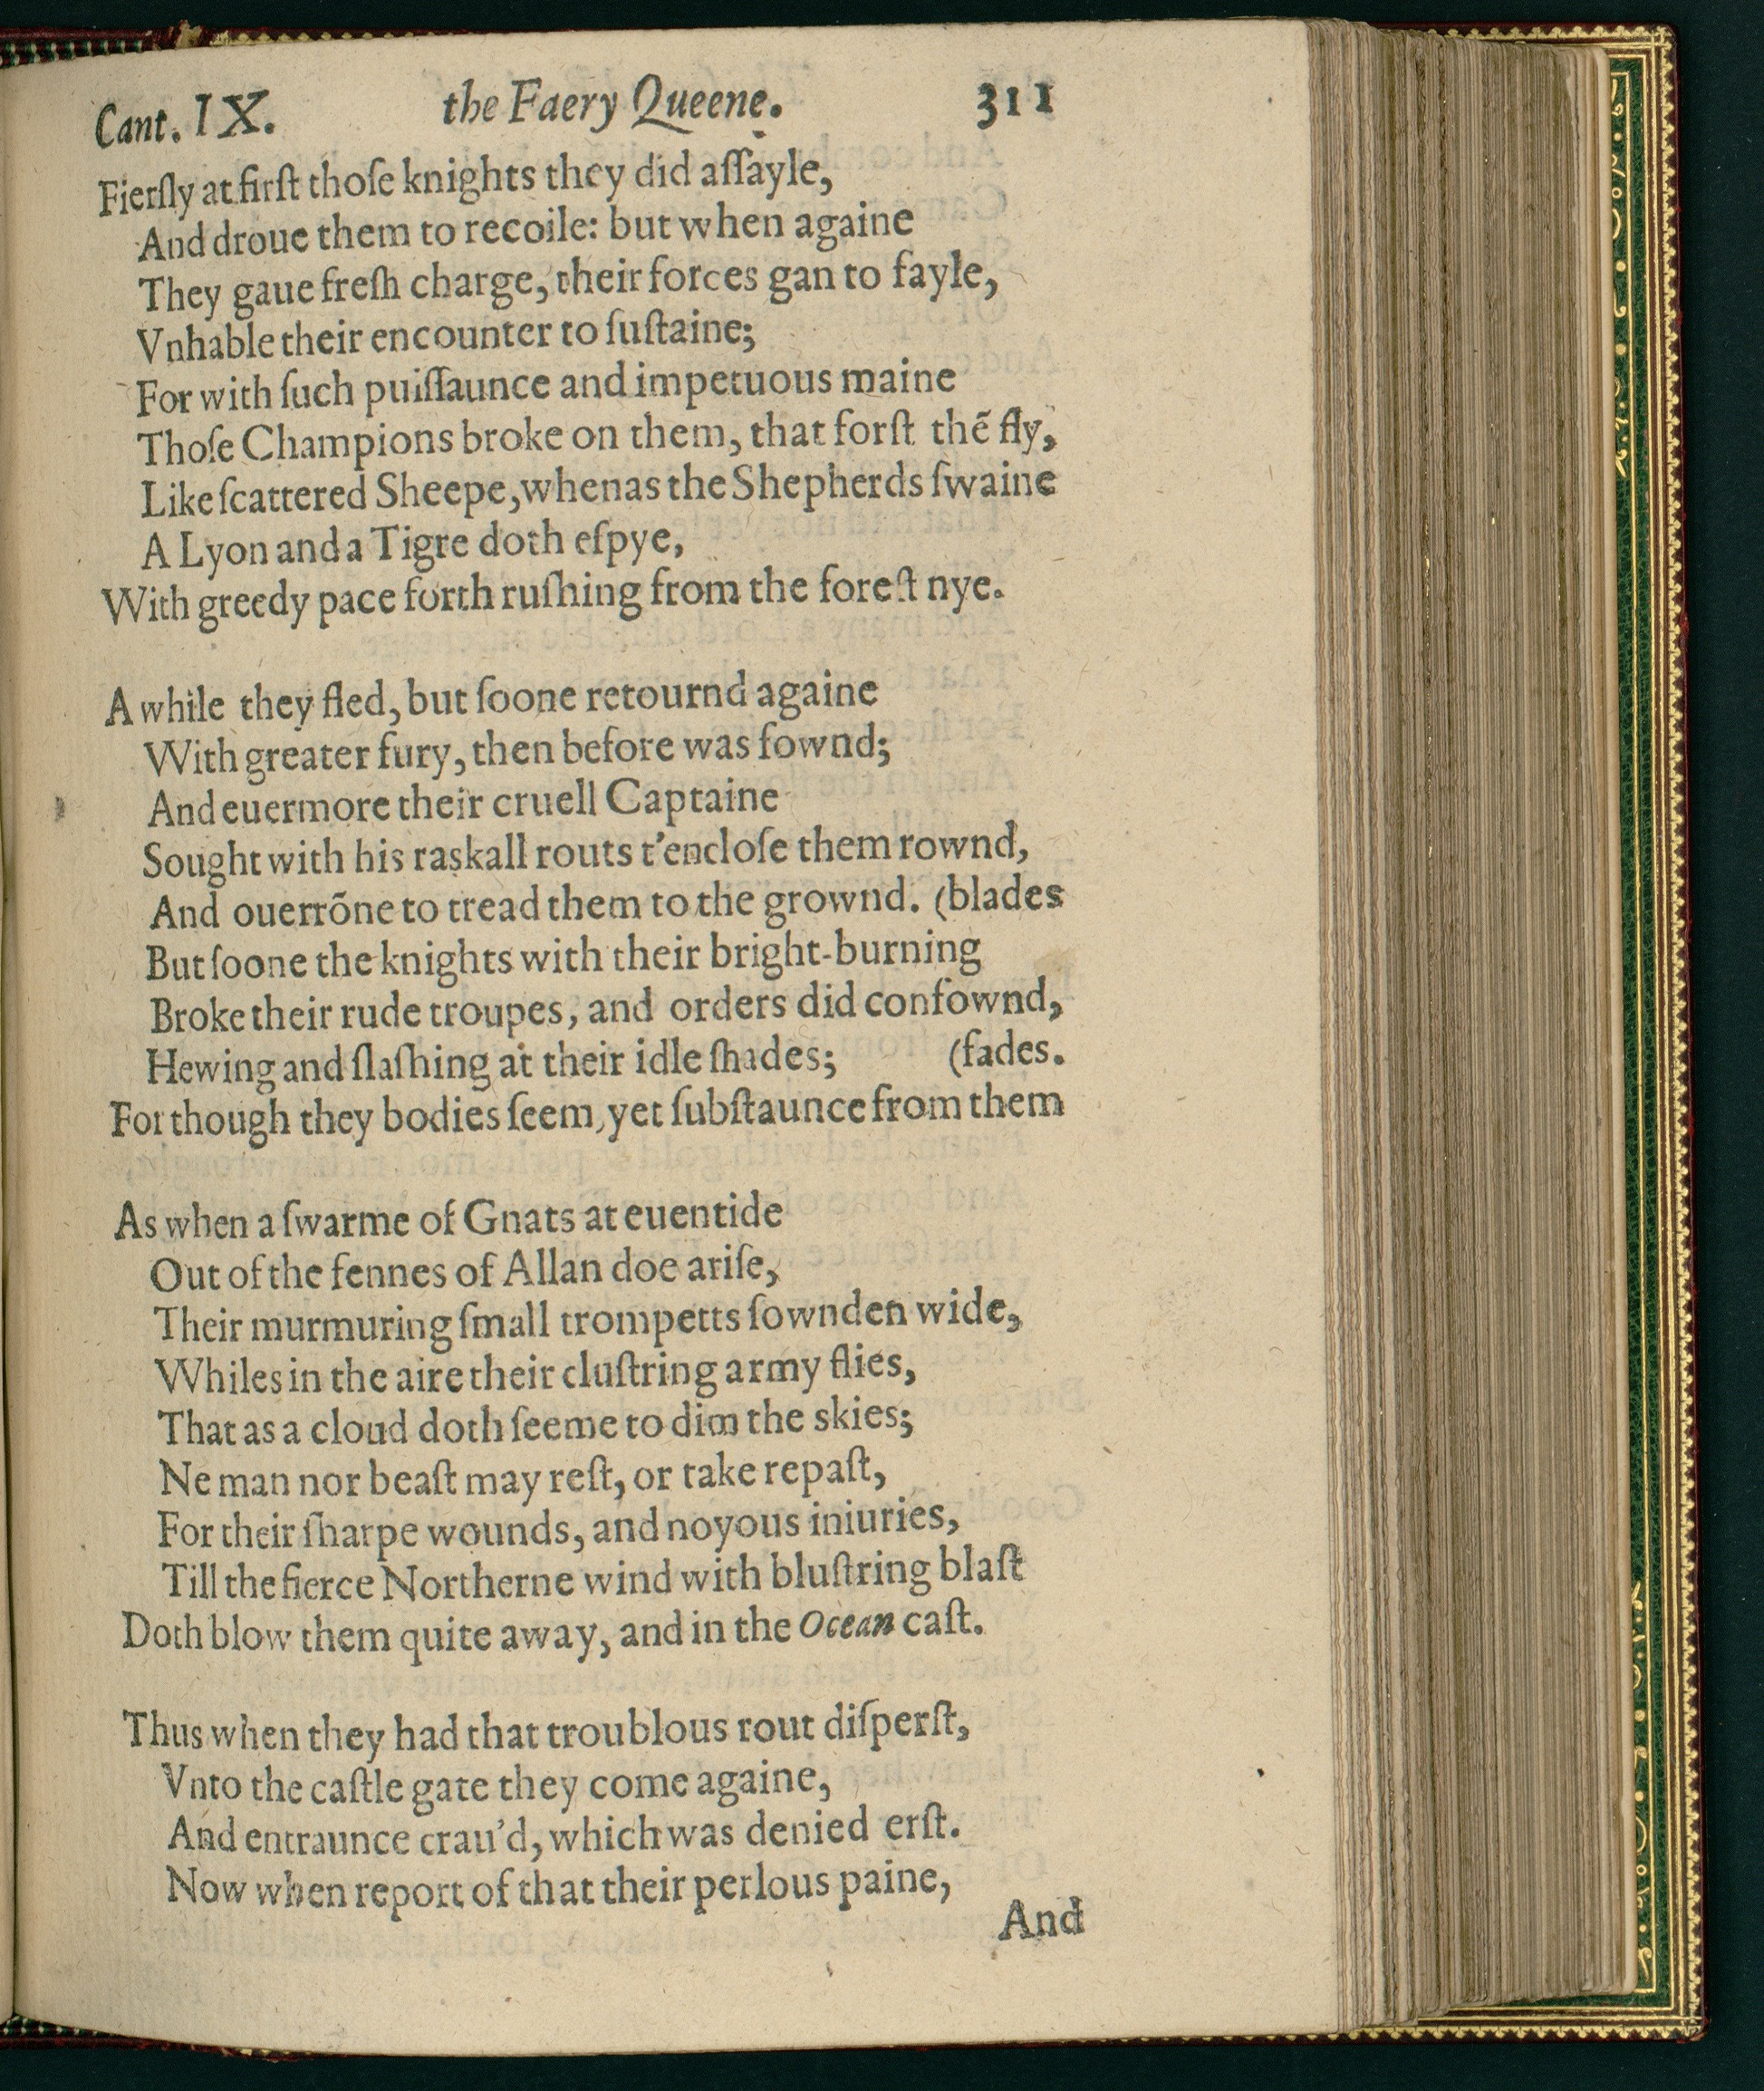 Cant. IX. the Faery Queene. 311
Fierſly at firſt thoſe knights they did aſſayle,
And droue them to recoile: but when againe
They gaue freſh charge, their forces gan to fayle,
Vnhable their encounter to ſuſtaine;
For with ſuch puiſſaunce and impetuous maine
Thoſe Champions broke on them, that forſt thẽ fly,
Like ſcattered Sheepe, whenas the Shepherds ſwaine
A Lyon and a Tigre doth eſpye,
With greedy pace forth ruſhing from the foreſt nye.
A while they fled, but ſoone retournd againe
With greater fury, then before was fownd;
And euermore their cruell Captaine
Sought with his raskall routs t'encloſe them rownd,
And ouerrõne to tread them to the grownd. (blades
But ſoone the knights with their bright-burning
Broke their rude troupes, and orders did confownd,
Hewing and ſlaſhing at their idle ſhades; (fades.
For though they bodies ſeem, yet ſubſtaunce from them
As when a ſwarme of Gnats at euentide
Out of the fennes of Allan doe ariſe,
Their murmuring ſmall trompetts ſownden wide,
Whiles in the aire their cluſtring army flies,
That as a cloud doth ſeeme to dim the skies;
Ne man nor beaſt may reſt, or take repaſt,
For their ſharpe wounds, and noyous iniuries,
Till the fierce Northerne wind with bluſtring blaſt
Doth blow them quite away, and in the Ocean caſt.
Thus when they had that troublous rout diſperſt,
Vnto the caſtle gate they come againe,
And entraunce crau'd, which was denied erſt.
Now when report of that their perlous paine,
And